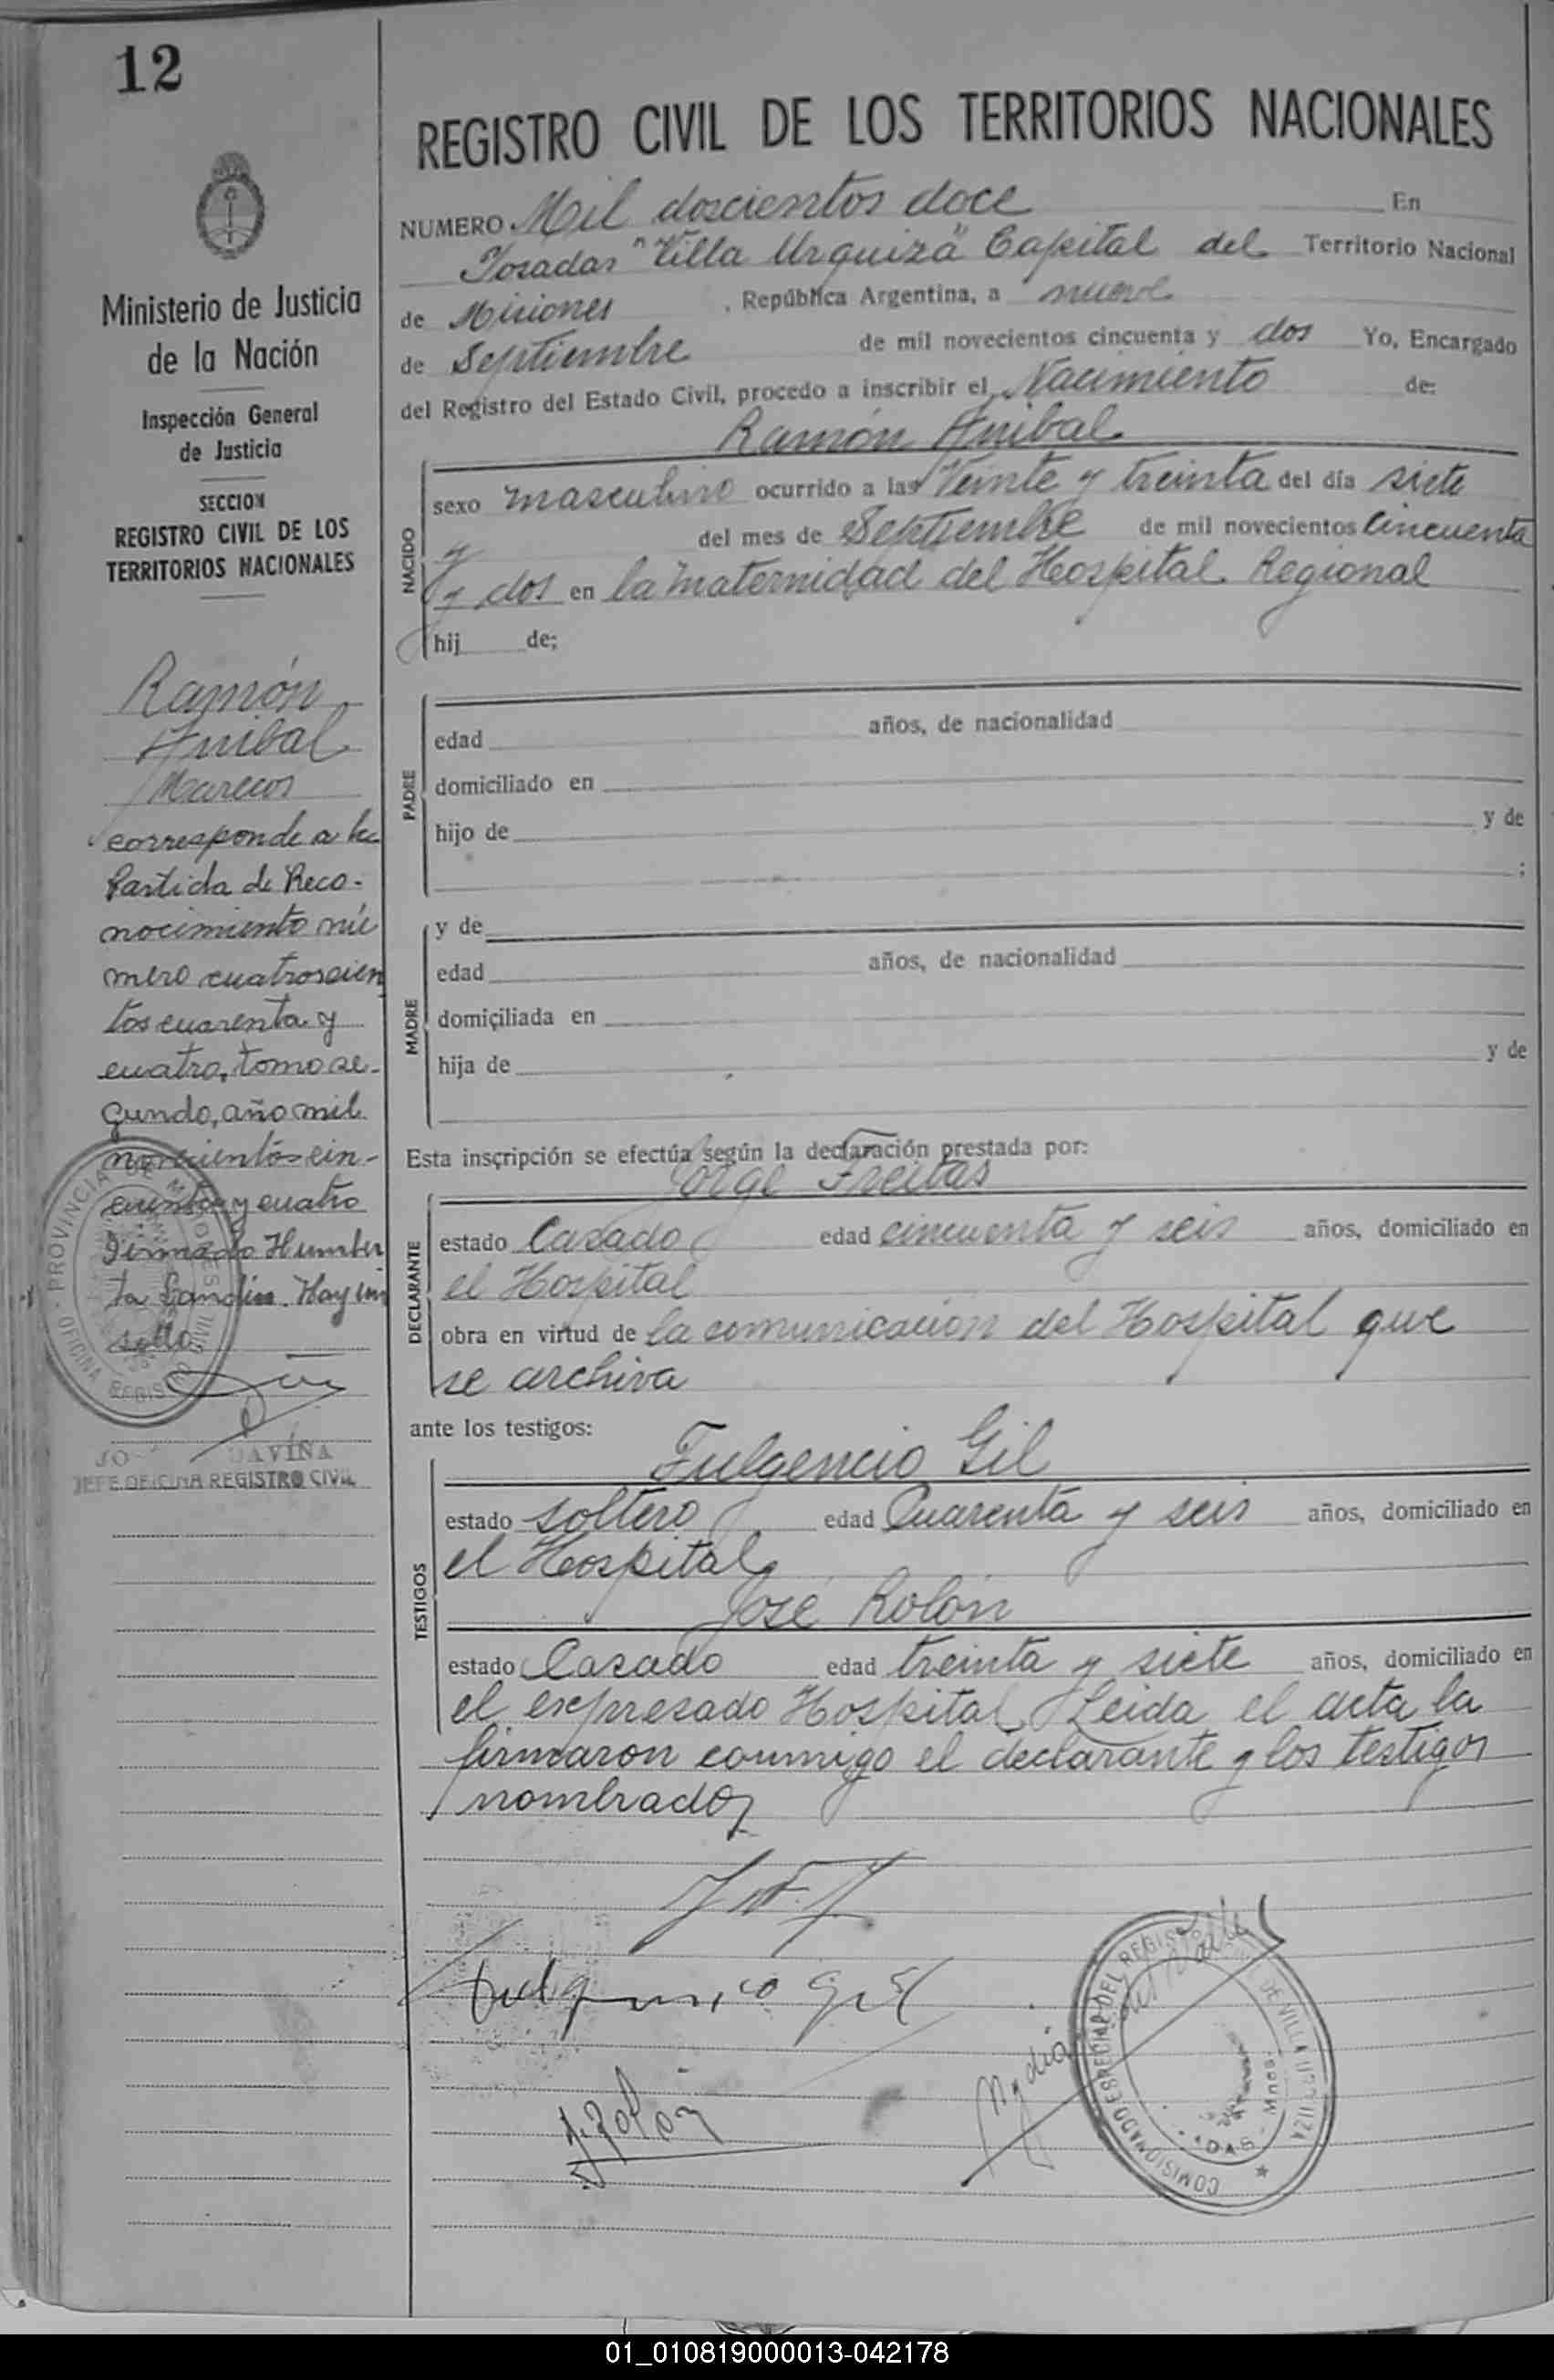 12
REGISTRO CIVIL DE LOS TERRITORIOS NACIONALES
Ministerio de Justicia
de la Nación
Inspección General
de Justicia
SECCION
REGISTRO CIVIL DE LOS
TERRITORIOS NACIONALES
Ramón
Anibal
Marecos
corresponde a la
Partida de Reco-
nocimiento nú
mero cuatroscien
tos cuarenta y
cuatro, tomo se-
gundo, año mil
novecientos cin-
cuenta y cuatro
Firmado Humber
ta Landin. Hay un
sello
PROVINCIA DE MISIONES
OFICINA REGISTRO CIVIL
DAVIÑA
JEFE OFICINA REGISTRO CIVIL
NUMERO Mil doscientos doce En
Posadas "Villa Urquiza" Capital del Territorio Nacional
de Misiones , República Argentina, a nueve
de Septiembre de mil novecientos cincuenta y dos Yo, Encargado
del Registro del Estado Civil, procedo a inscribir el Nacimiento de:
Ramón Anibal
NACIDO
sexo masculino ocurrido a las Veinte y treinta del día siete
y del mes de Septiembre de mil novecientos Cincuenta
y dos en la maternidad del Hospital Regional
hij de;
PADRE
edad años, de nacionalidad
domiciliado en
hijo de y de
;
MADRE
y de
edad años, de nacionalidad
domiciliada en
hija de y de
Esta inscripción se efectúa según la declaración prestada por:
Jorge Freitas
DECLARANTE
estado Casado edad cincuenta y seis años, domiciliado en
el Hospital
obra en virtud de la comunicación del Hospital que
se archiva
ante los testigos:
Fulgencio Gil
TESTIGOS
estado soltero edad Cuarenta y seis años, domiciliado en
el Hospital
José Rolón
estado Casado edad treinta y siete años, domiciliado en
el expresado Hospital Leida el acta la
firmaron conmigo el declarante y los testigos
nombrados
Fulgencio Gil
J. Rolón
Nydia del Valle
COMISIONADO ESPECIAL DEL REGISTRO CIVIL DE VILLA URQUIZA
01_010819000013-042178